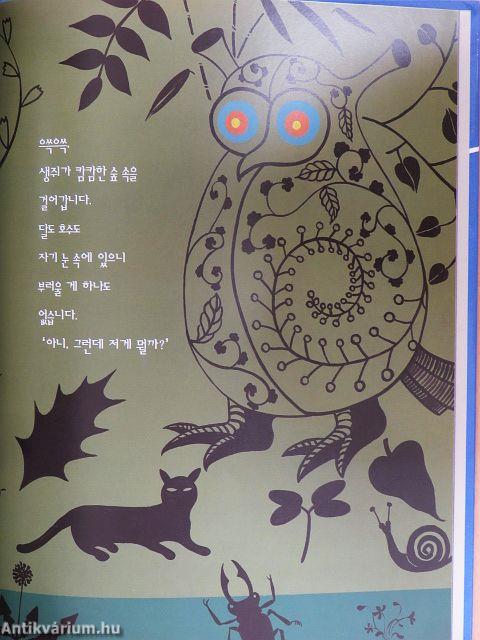 으쓱으쓱
생쥐가 캄캄한 숲 속을
걸어갑니다.
달도 호수도
자기 눈 속에 있으니
부러울 게 하나도
없습니다.
'아니, 그런데 저게 뭘까?'
Antikvárium.hu
Antikvárium.hu